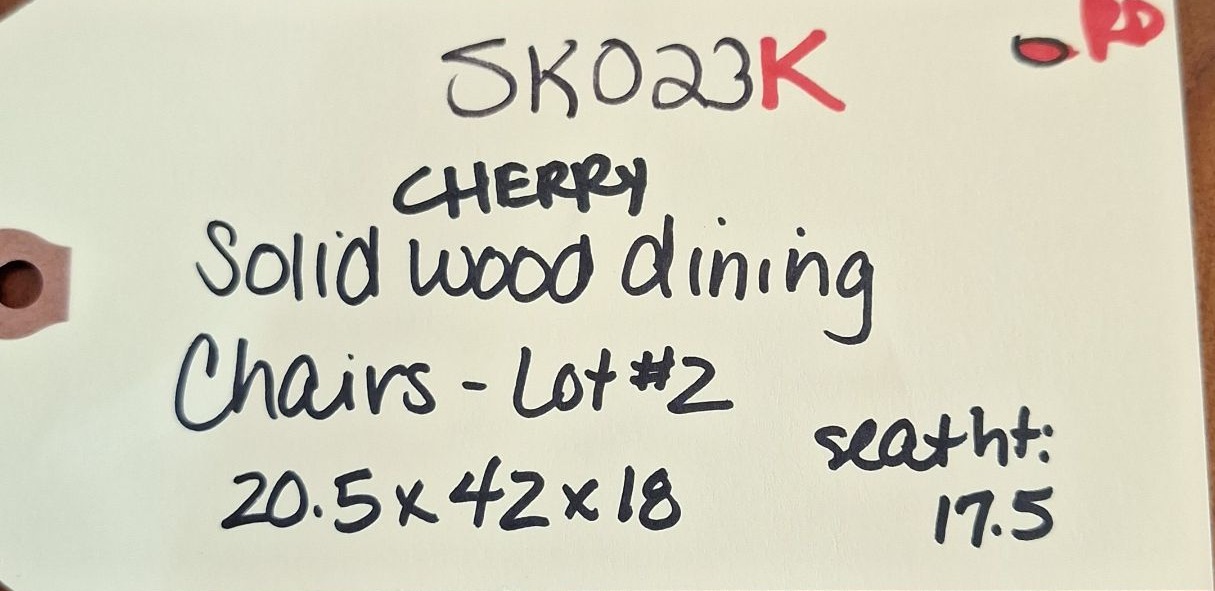 RD
SK023K
CHERRY
Solid wood dining
Chairs - Lot #2
seat ht:
20.5 x 42 x 18
17.5